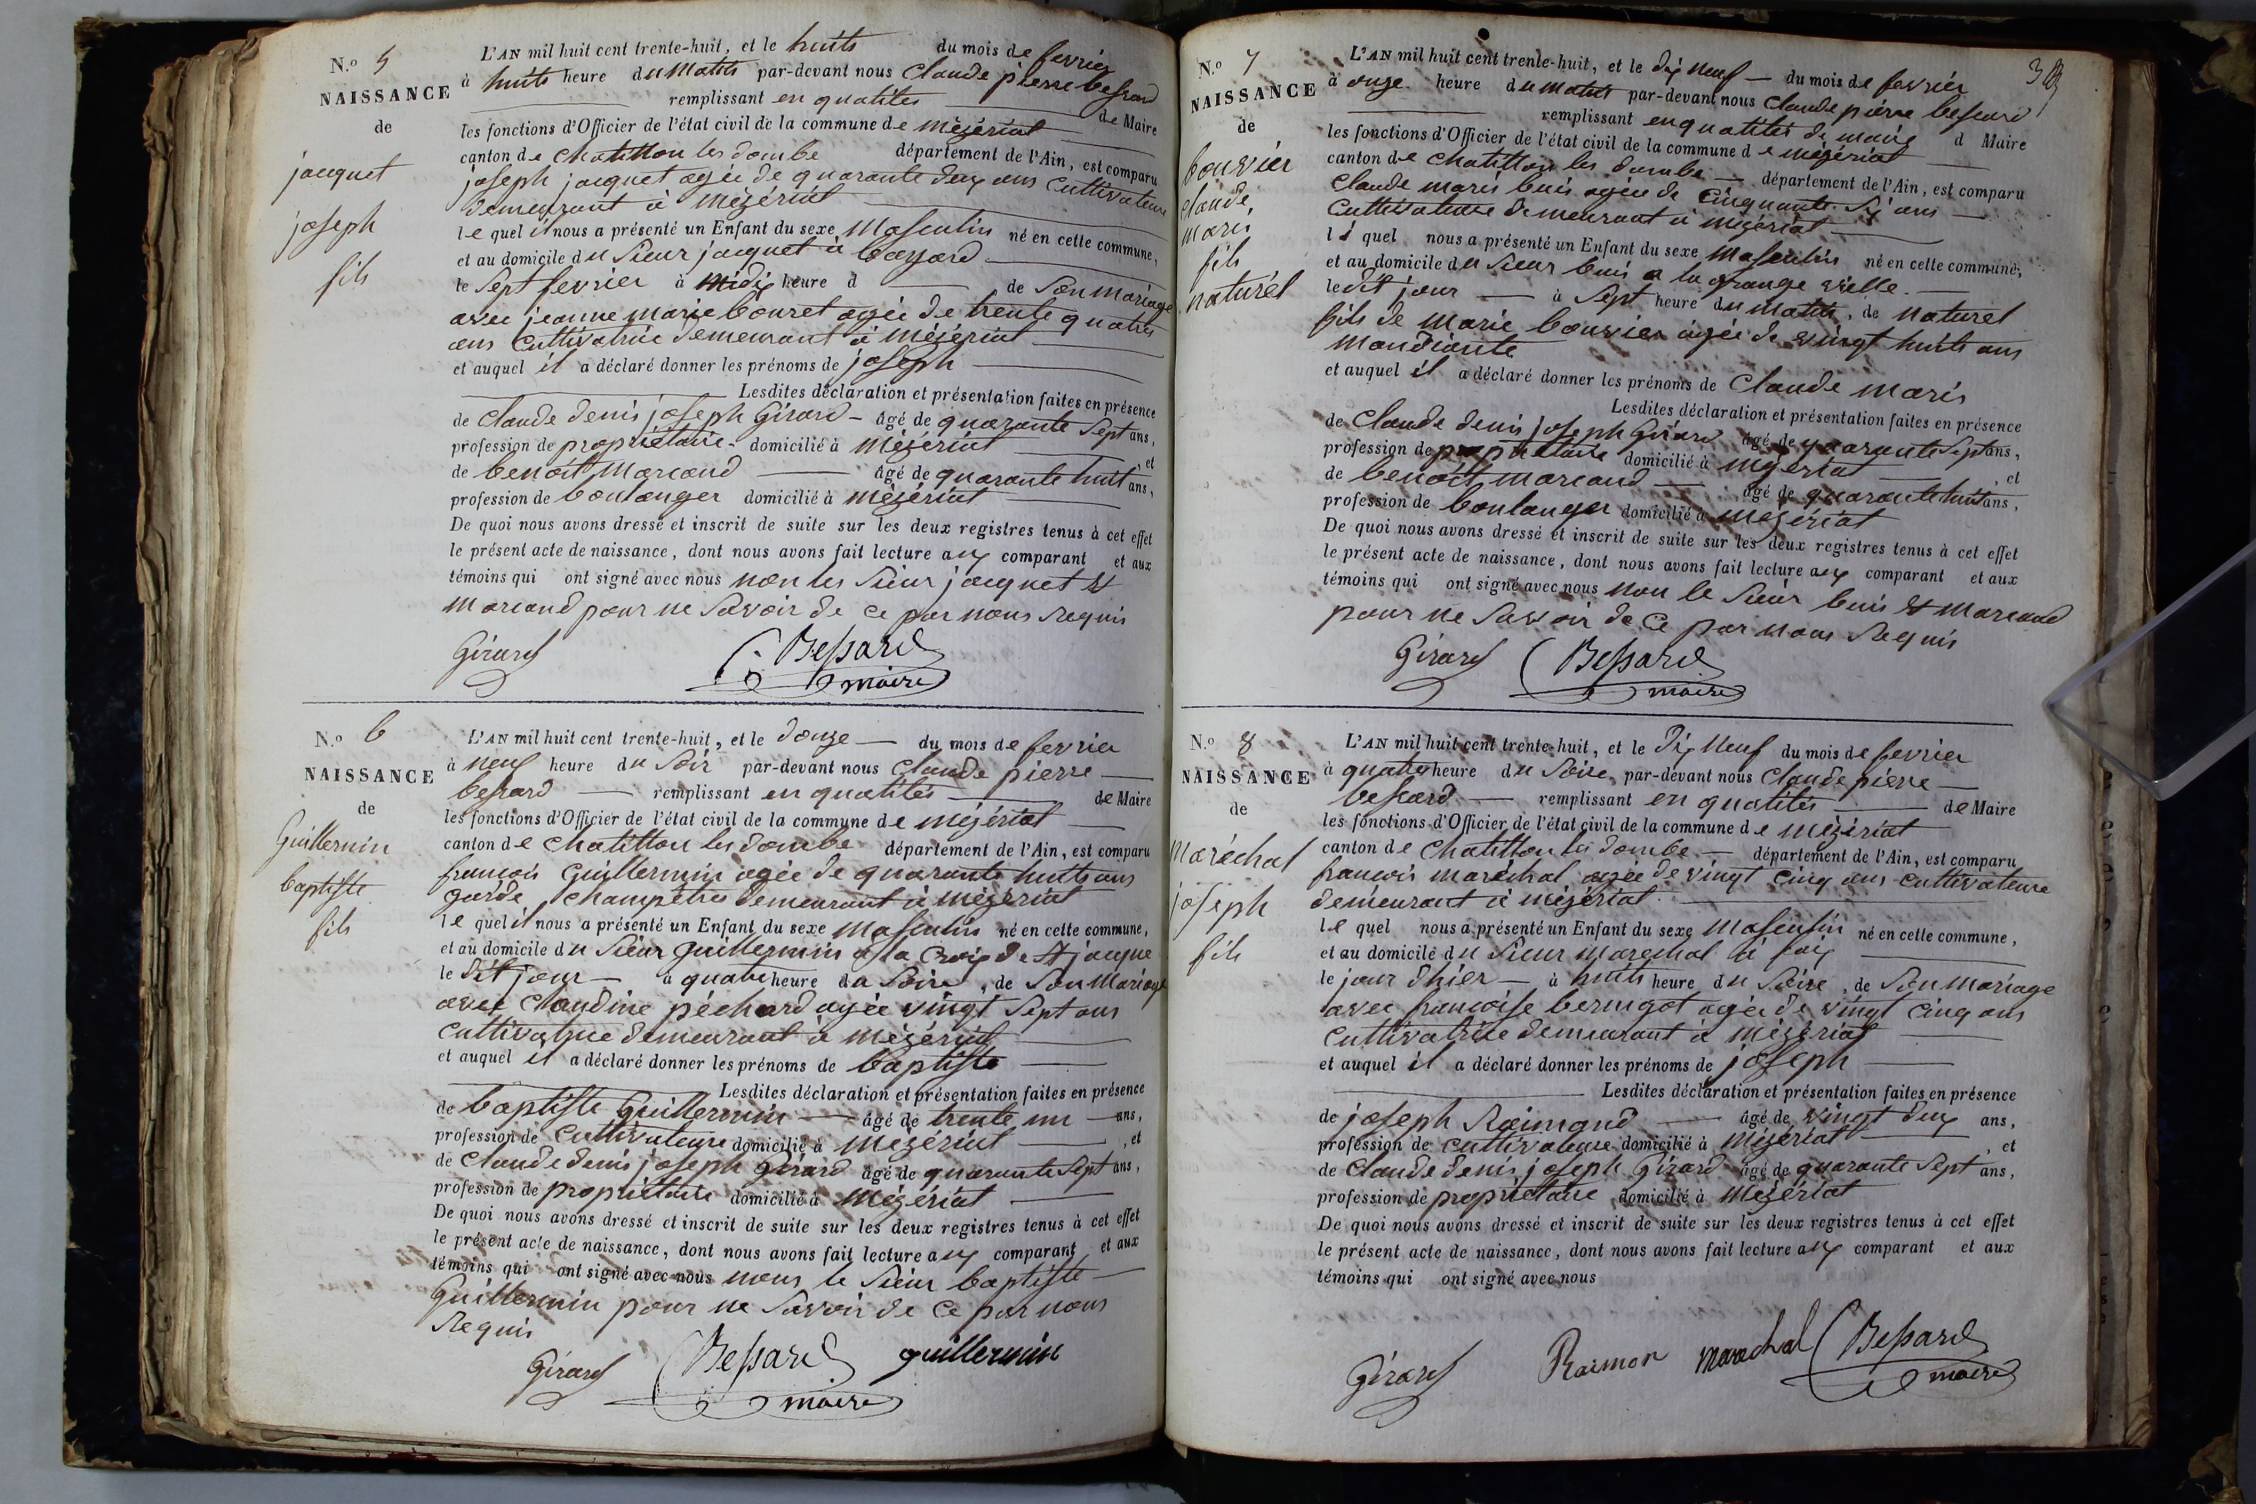 N.o 5
NAISSANCE
de
jacquet
joseph
fils
L'AN mil huit cent trente-huit, et le huits du mois de fevrier
à huits heure du Matits par-devant nous Claude pierre bessard
remplissant en qualités de Maire
les fonctions d'Officier de l'état civil de la commune de mézériat
canton de chatillon les dombe département de l'Ain, est comparu
joseph jacquet agée de quarante deux ans Cultivateure
demeurant à Mézériat
le quel il nous a présenté un Enfant du sexe Masculin né en cette commune,
et au domicile du Sieur jacquet à bayard
le Sept fevrier à Midi heure d de Son mariage
avec jeanne marie bouret agée de trente quatres
ans Cultivatrice demeurant à mézériat
et auquel il a déclaré donner les prénoms de joseph
Lesdites déclaration et présentation faites en présence
de Claude denis joseph Girard âgé de quarante Sept ans,
profession de propriétaire domicilié à Mézériat , et
de benoit Marcand âgé de quarante huit ans,
profession de boulanger domicilié à mézériat
De quoi nous avons dressé et inscrit de suite sur les deux registres tenus à cet effet
le présent acte de naissance, dont nous avons fait lecture aux comparant et aux
témoins qui ont signé avec nous non les Sieur jacquet et
Marcand pour ne Savoir de ce par nous Requis
Girard C. Bessard
maire
N.o 6
NAISSANCE
de
Guillermin
baptiste
fils
L'AN mil huit cent trente-huit, et le douze du mois de fevrier
à neuf heure du Soir par-devant nous Claude pierre
bessard remplissant en qualités de Maire
les fonctions d'Officier de l'état civil de la commune de mézériat
canton de Chatillon les dombe département de l'Ain, est comparu
francois Guillermin agée de quarante huits ans
garde champêtre demeurant à mézériat
le quel il nous a présenté un Enfant du sexe Masculin né en cette commune,
et au domicile du Sieur Guillermin a la Croix de St jacque
le dit jour à quatre heure du Soire, de Son Mariage
avec Claudine péchard agée vingt Sept ans
Cultivatrice demeurant à Mézériat
et auquel il a déclaré donner les prénoms de baptiste
Lesdites déclaration et présentation faites en présence
de baptiste Guillermin âgé de trente un ans,
profession de Cultivateure domicilié à Mézériat , et
de Claude denis joseph Girard âgé de quarante Sept ans,
profession de propriétaire domicilié à Mézériat
De quoi nous avons dressé et inscrit de suite sur les deux registres tenus à cet effet
le présent acte de naissance, dont nous avons fait lecture aux comparant et aux
témoins qui ont signé avec nous nous le Sieur baptiste
Guillermin pour ne Savoir de ce par nous
Requis
Girard C Bessard guillermin
maire
38
N.o 7
NAISSANCE
de
bouvier
claude
maris
fils
naturel
L'AN mil huit cent trente-huit, et le dix Neuf du mois de fevrier
à onze heure du matits par-devant nous Claude pierre bessard
remplissant en qualités de maire d Maire
les fonctions d'Officier de l'état civil de la commune de mézériat
canton de Chatillon les dombe département de l'Ain, est comparu
Claude maris buis agée de Cinquante Six ans
Cultivateure demeurant à mézériat
le quel nous a présenté un Enfant du sexe Masculin né en cette commune,
et au domicile du Sieur buis a la grange vielle
le dit jour à Sept heure du matits, de naturel
fils de marie bouvier agée de vingt huits ans
mandiante
et auquel il a déclaré donner les prénoms de Claude maris
Lesdites déclaration et présentation faites en présence
de Claude denis joseph Girard âgé de quarante Sept ans,
profession de propriétaire domicilié à mézériat , et
de benoit marcand âgé de quarante huit ans,
profession de boulanger domicilié à mézériat
De quoi nous avons dressé et inscrit de suite sur les deux registres tenus à cet effet
le présent acte de naissance, dont nous avons fait lecture aux comparant et aux
témoins qui ont signé avec nous non le Sieur buis et marcand
pour ne Savoir de ce par nous Requis
Girard C Bessard
maire
N.o 8
NAISSANCE
de
Maréchal
joseph
fils
L'AN mil huit cent trente-huit, et le Dix Neuf du mois de fevrier
à quatre heure du Soire par-devant nous Claude pierre
bessard remplissant en qualités de Maire
les fonctions d'Officier de l'état civil de la commune de mézériat
canton de Chatillon les dombe département de l'Ain, est comparu
francois maréchal agée de vingt cinq ans cultivateure
demeurant à mézériat
le quel nous a présenté un Enfant du sexe Masculin né en cette commune,
et au domicile du Sieur marechal à
le jour d'hier à huits heure du Soire, de Son mariage
avec francoise agée de vingt Cinq ans
Cultivatrice demeurant à Mézériat
et auquel il a déclaré donner les prénoms de joseph
Lesdites déclaration et présentation faites en présence
de joseph Raimond âgé de vingt deux ans,
profession de cultivateure domicilié à Mézériat , et
de Claude denis joseph Girard âgé de quarante Sept ans,
profession de propriétaire domicilié à Mézériat
De quoi nous avons dressé et inscrit de suite sur les deux registres tenus à cet effet
le présent acte de naissance, dont nous avons fait lecture aux comparant et aux
témoins qui ont signé avec nous
Girard Raimon marechal C Bessard
maire